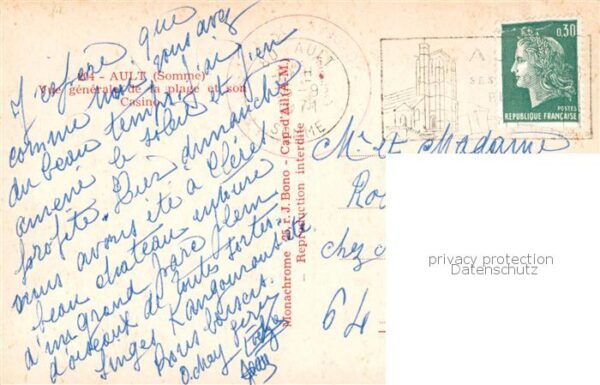 J'espère que
comme nous vous avez
du beau temps j'ai
amené le soleil et j'en
profite. Hier dimanche
nous avons été à Clères
beau chateau entouré
d'un grand parc plein
d'oiseaux de toutes sortes
singes Kangourous etc
Bons baisers
104 - AULT (Somme)
Vue générale de la plage et son
Casino
Monachrome - 25, r. J. Bono - Cap-d'Ail (A-M.)
Reproduction interdite
AULT
SOMME
0,30
POSTES
REPUBLIQUE FRANÇAISE
Mr et Madame
chez
64
privacy protection
Datenschutz